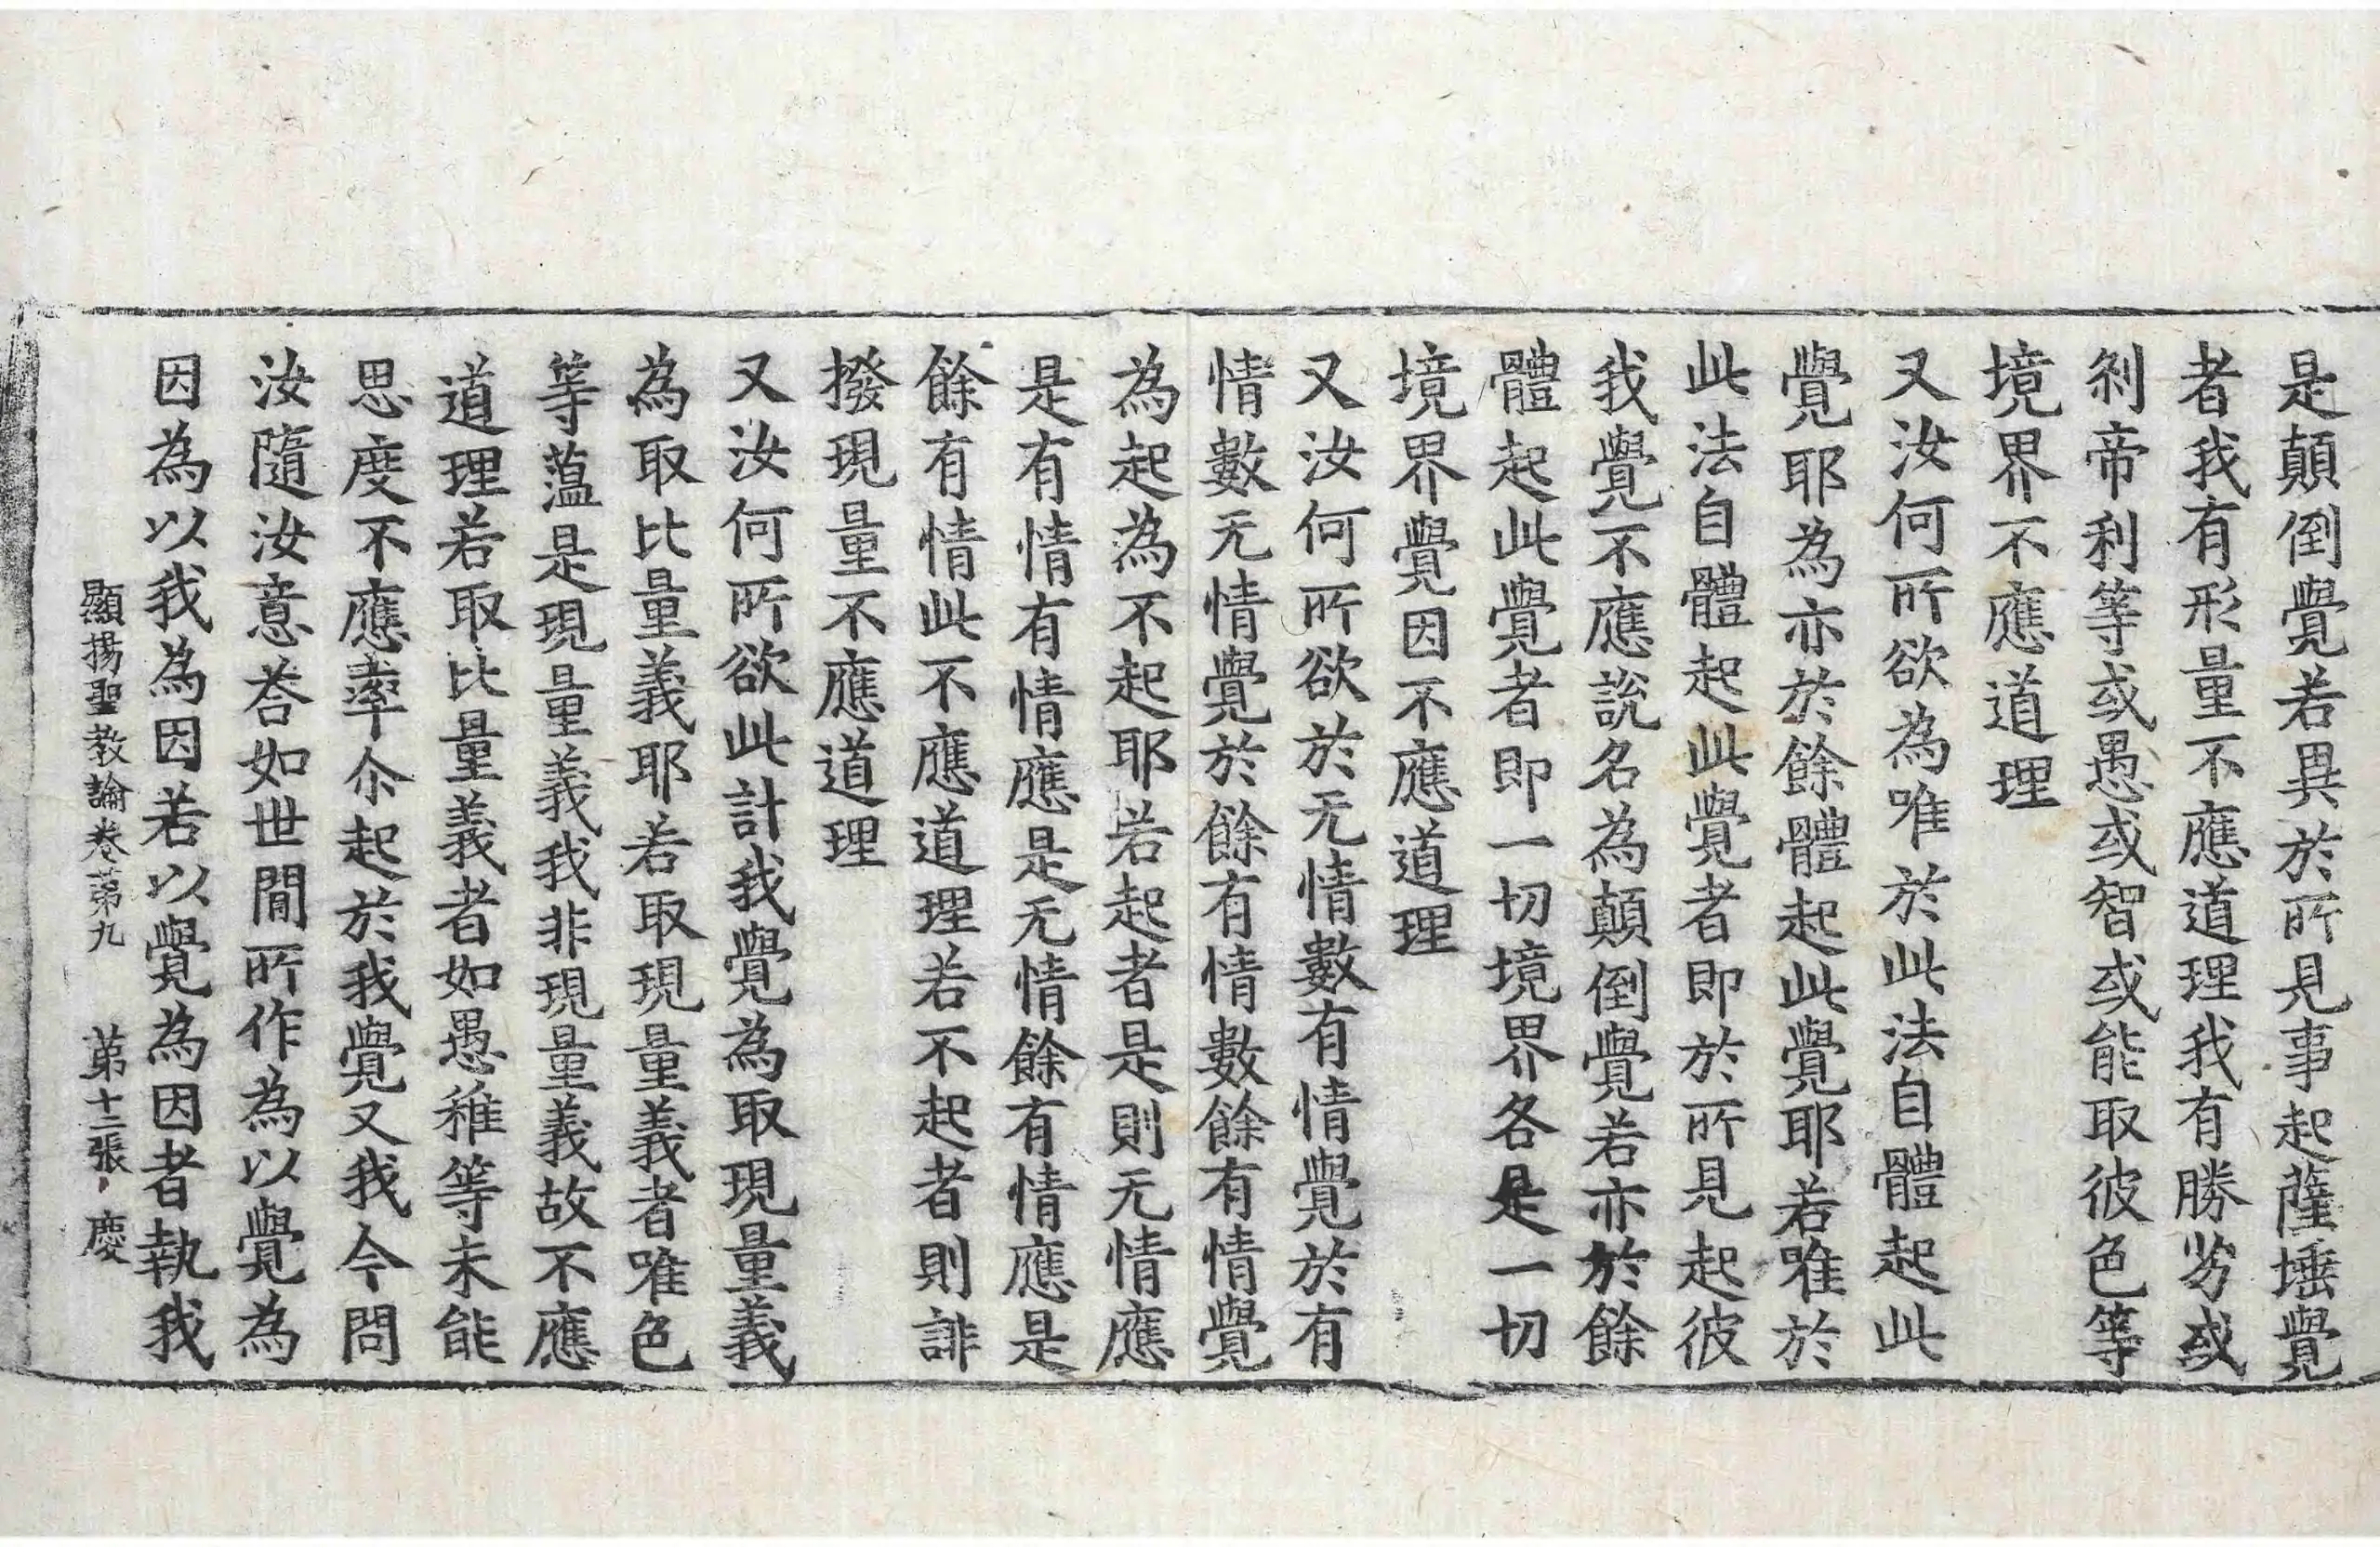 是顛倒覺若異於所見事起薩埵覺
者我有形量不應道理我有勝劣或
刹帝利等或愚或智或能取彼色等
境界不應道理
又汝何所欲為唯於此法自體起此
覺耶為亦於餘體起此覺耶若唯於
此法自體起此覺者即於所見起彼
我覺不應說名為顛倒覺若亦於餘
體起此覺者即一切境界各是一切
境界覺因不應道理
又汝何所欲於无情數有情覺於有
情數无情覺於餘有情數餘有情覺
為起為不起耶若起者是則无情應
是有情有情應是无情餘有情應是
餘有情此不應道理若不起者則誹
撥現量不應道理
又汝何所欲此計我覺為取現量義
為取比量義耶若取現量義者唯色
等蕰是現量義我非現量義故不應
道理若取比量義者如愚稚等未能
思度不應率尒起於我覺又我今問
汝隨汝意荅如世間所作為以覺為
因為以我為因若以覺為因者執我
顯揚聖教論卷苐九 苐十三張 慶